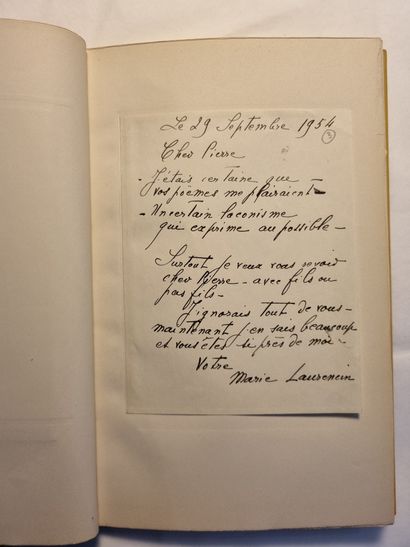 Le 29 Septembre 1954
3
Cher Pierre
- J'étais certaine que -
vos poèmes me plairaient -
- Un certain laconisme
qui exprime au possible -
Surtout je veux vous revoir
cher Pierre - avec fils ou
pas fils -
J'ignorais tout de vous -
maintenant j'en sais beaucoup
et vous êtes si près de moi -
Votre
Marie Laurencin